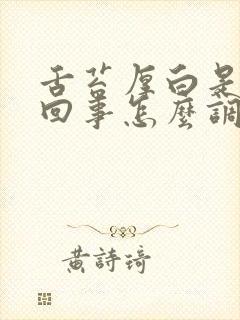 舌苔厚白是
回事怎麼調
黃詩琦